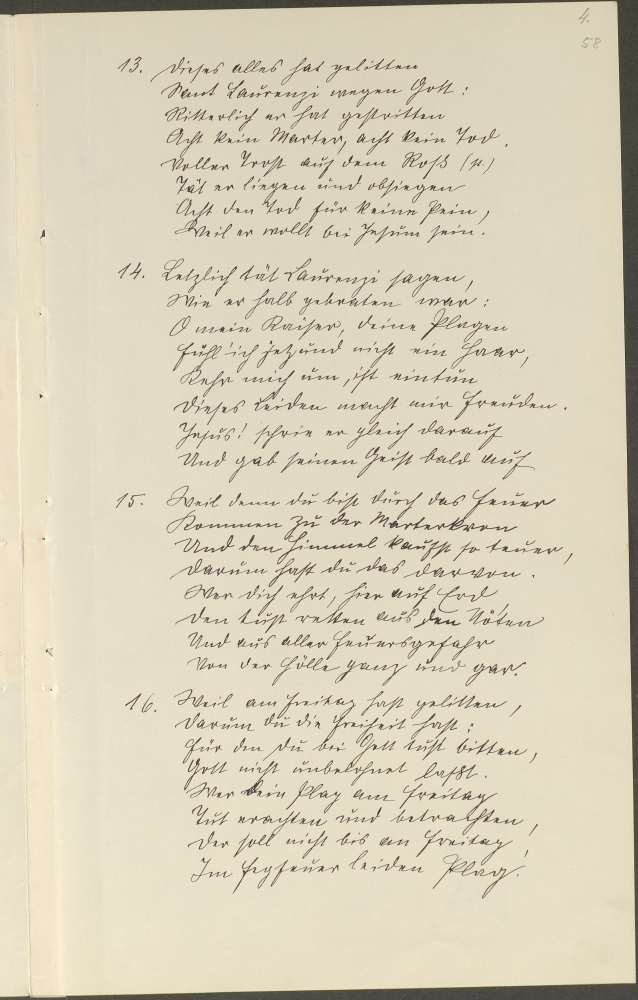 4.
58
13. Dieses alles hat gelitten
Sant Laurenzi wegen Gott:
Ritterlich er hat gestritten
Acht kein Marter, acht kein Tod.
Voller Trost auf dem Roß (sic)
Tät er liegen und obsiegen
Acht den Tod für keine Pein,
Weil er wollt bei Jesum sein.
14. Letzlich tät Laurenzi sagen,
Wie er halb gebraten war:
O mein Kaiser, deine Plagen
Fühl' ich jetzund nicht ein Haar,
Kehr mich um, ist eintun
Dieses Leiden macht mir Freuden.
Jesus! schrie er gleich darauf
Und gab seinen Geist bald auf
15. Weil denn du bist durch das Feuer
Kommen zu der Marterkron
Und den Himmel kaufst so teuer,
Darum hast du das darvon.
Wer dich ehrt, hier auf Erd
Den tust retten aus den Nöten
Und aus aller Feuersgefahr
Von der Hölle ganz und gar.
16. Weil am Freitag hast gelitten,
Darum du die Freiheit hast:
Für den du bei Gott tust bitten,
Gott nicht unbelohnet laßt.
Wer dein Plag am Freitag
Tut erachten und betrachten,
Der soll nicht bis an Freitag,
Im Fegfeuer leiden Plag.